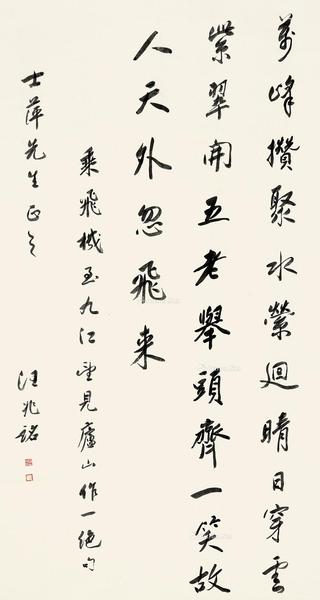 萬峰攢聚水縈迴晴日穿雲
紫翠開五老舉頭齊一笑故
人天外忽飛来
乘飛機至九江望見廬山作一絕句
士萍先生正之
汪兆銘